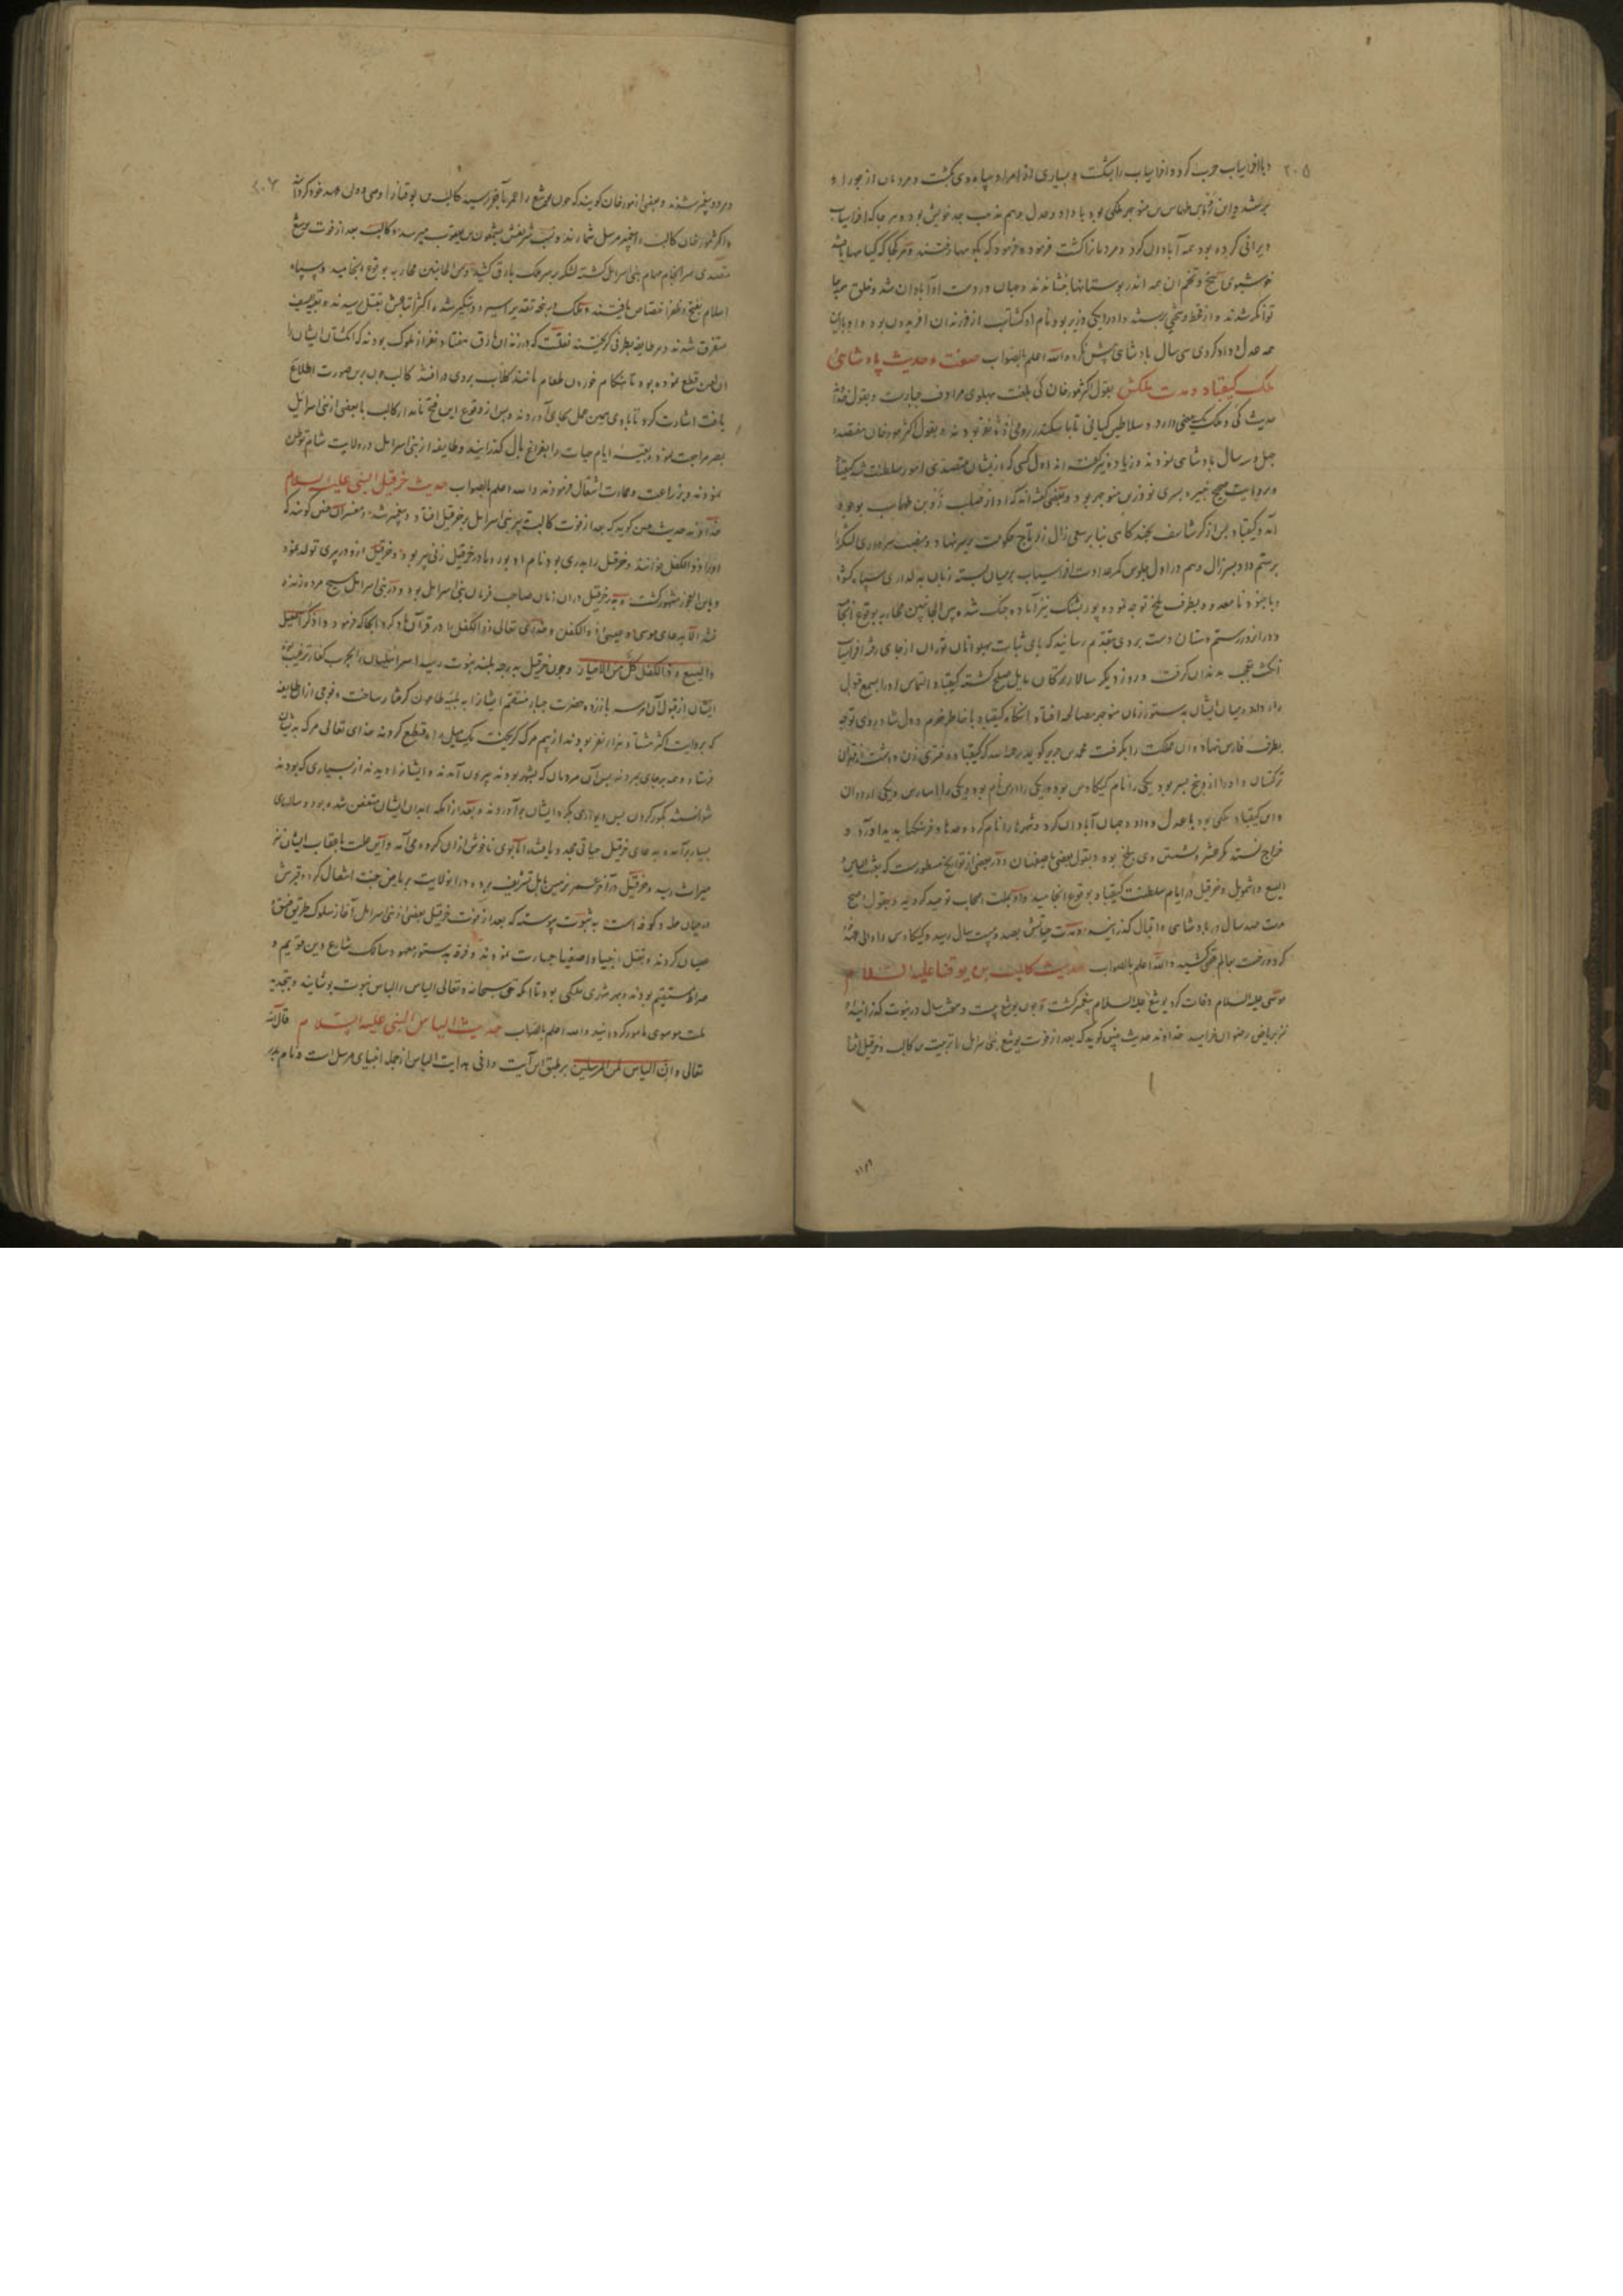 ۲۰۵
با افراسیاب حرب کرد و افراسیاب را بشکست و بسیاری از امرا و سپاه وی بکشت و مردمان از جور او
برستند و این زو بن طهماسب بن منوجهر ملکی بود با داد و عدل و هم مذهب جد خویش بود و هر جا که افراسیاب
ویرانی کرده بود همه آبادان کرد و مردمانرا کشت فرمود و فرمود که بکوهها رفتند و هر کجا که کیاهها یافتند
خوشبوی بیخ و تخم آن همه اندر بوستانها بنشاندند و جهان در دست او آبادان شد و خلق همه
توانکر شدند و از قحط و سختی برستند و او را یکی وزیر بود نام او کشتاسب از فرزندان افریدون بود و او با این
همه عدل و داد کردی سی سال بادشاهی بیش نکرد والله اعلم بالصواب صفت و حدیث پادشاهی
ملک کیقباد و مدت ملکش بقول اکثر مورخان کی بلغت پهلوی مرادف جبارست و بقول
حدیث کی و ملک یک معنی دارد و سلاطین کیانی تا با سکندر رومی نفر بودند و بقول اکثر مورخان هفتصد و
چهل و سه سال بادشاهی نمودند و زیاده نیز کفته اند اول کسی که از یشان متصدی امور سلطنت شد کیقباد
و بروایت صحیح نبیره و بسری نوذر بن منوجهر بود و بعضی کفته اند که او از صلب زو بن طهماسب بوجود
آمد و کیقباد بس از کرشاسف بسعی زال زر تاج حکومت بر سر نهاد و منصب سرداری لشکر را
برستم داد بسر زال و هم در اول جلوس کمر عداوت افراسیاب بر میان بسته
و با جنود نامعدود بطرف بلخ توجه نمود و پور بشنک نیز آماده جنک شده من الجانبین محاربه بوقوع انجامید
و در آن روز رستم دستان دست بردی بتقدیم رسانید که پای ثبات پهلوانان توران از جای رفته افراسیاب
انکشت تعجب بدندان کرفت و روز دیکر سالار ترکان مایل صلح کشته کیقباد التماس او را بسمع قبول
راه داد و میان ایشان بدستور زمان منوجهر مصالحه افتاد و انکاه کیقباد با خاطر خرم و دل شاد روی توجه
بطرف فارس نهاد و آن مملکت را بکرفت محمد بن جریر کوید رحمه الله که کیقباد دختری زن داشت از
ترکستان و او را از و پنج بسر بود یکی را نام کیکاوس بود و یکی را
و این کیقباد ملکی بود با عدل و داد و جهان آبادان کرد و شهرها را نام کرد و حدها و فرسنکها بدید آورد و
خراج نستد مکر عشر و نشستن وی ببلخ بوده و بقول بعضی باصفهان و در بعضی از تواریخ مسطورست که بعثت الیاس
الیسع و اشمویل و خرقیل در ایام سلطنت کیقباد بوقوع انجامید
مدت صد سال در بادشاهی و اقبال کذرانیده و مدت حیاتش بصد و بیست سال رسید و کیکاوس را ولی عهد
کرد و رخت بعالم عقبی کشید والله اعلم بالصواب حدیث کالب بن یوقنا علیه السلام
موسی علیه السلام وفات کرد یوشع علیه السلام پیغمبر کشت و جون یوشع بیست و هشت سال در نبوت کذرانیده
نیز بریاض رضوان خرامید خداوند حدیث چنین کوید که بعد از فوت یوشع بنی اسرائیل با تربیت کالب و خرقیل افتاد
۲۰۶
و هر دو پیغمبر شدند و بعضی از مورخان کویند که جون یوشع را عمر بآخر رسید کالب بن یوقنا را وصی و ولی عهد خود کردانید
و اکثر مورخان کالب را پیغمبر مرسل شمارند و نسب شریفش بشمعون بن یعقوب میرسد و کالب بعد از فوت یوشع
متصدی سرانجام مهام بنی اسرائیل کشته لشکر بر سر ملک بارق کشید و من الجانبین محاربه بوقوع انجامید و سپاه
اسلام بفتح و ظفر اختصاص یافتند و ملک در پنجه تقدیر اسیر و دستکیر شد و اکثر اتباعش بقتل رسیدند و بقیة السیف
متفرق شدند و هر طایفه بطرفی کریختند نقلست که در زندان بارق هفتاد نفر از ملوک بودند که انکشتان ایشان را
آن لعین قطع نموده بود تا بهنکام خوردن طعام مانند کلاب بروی در افتند کالب چون برین صورت اطلاع
یافت اشارت کرد تا با وی همین عمل بجای آوردند و بس از وقوع این فتح نامدار کالب با بعضی از بنی اسرائیل
بمصر مراجعت نمود و بقیه ایام حیات را بفراغ بال کذرانید و طایفه از بنی اسرائیل در ولایت شام توطن
نمودند و بزراعت و عمارت اشتغال فرمودند والله اعلم بالصواب حدیث خرقیل النبی علیه السلام
خداوند حدیث چنین کوید که بعد از فوت کالب تدبیر بنی اسرائیل بر خرقیل افتاد و پیغمبر شد و مفسران چنین کویند که
او را ذوالکفل خوانند و خرقیل را پدری بود نام او بور و مادر خرقیل زنی پیر بود و خرقیل از و در پیری تولد نمود
و بابن العجوز مشهور کشت و خرقیل در آن زمان صاحب فرمان بنی اسرائیل بود و در بنی اسرائیل هیچ مرده زنده
نشد الا بدعای موسی و عیسی و ذوالکفل و خدای تعالی ذوالکفل را در قرآن یاد کرد آنجا که فرمود واذکر اسمعیل
والیسع و ذاالکفل کل من الاخیار و چون خرقیل بدرجه بلند نبوت رسید اسرائیلیان را بحرب کفار ترغیب
ایشان از قبول آن امر سر باز زده حضرت جبار منتقم ایشانرا به بلیه طاعون کرفتار ساخت و فوجی از آن طایفه
که بروایت اکثر هشتاد هزار نفر بودند از بیم مرک کریخته یک میل راه قطع کردند خدای تعالی مرک بدیشان
فرستاد و همه بر جای بمردند پس آن مردمان که بشهر بودند بیرون آمدند و ایشانرا دیدند از بسیاری که بودند
نتوانستند کور کردن بس دیواری بکرد ایشان بر آوردند و بعد از آنکه ابدان ایشان متعفن شده بود و سالهای
بسیار برآمد بدعای خرقیل حیاتی مجدد یافتند اما بوی ناخوش از آن کروه می آمد و این علت باعقاب ایشان نیز
میراث رسید و خرقیل در آخر عمر بزمین بابل تشریف برده در آن ولایت بریاض جنت انتقال کرد و قبرش
در میان حله و کوفه است به ثبوت پیوسته که بعد از فوت خرقیل بعضی از بنی اسرائیل آغاز سلوک طریق فسق و
عصیان کردند و بقتل انبیا و اصفیا جسارت نمودند و فرقه بدستور معهود سالک شارع دین قویم و
صراط مستقیم بودند و بهر شهری ملکی بود تا آنکه حق سبحانه و تعالی الیاس را لباس نبوت پوشانید و بتجدید
ملت موسوی مامور کردانید والله اعلم بالصواب حدیث الیاس النبی علیه السلام قال الله
تعالی و ان الیاس لمن المرسلین بر طبق این آیت وافی هدایت الیاس از جمله انبیای مرسل است و نام پدر